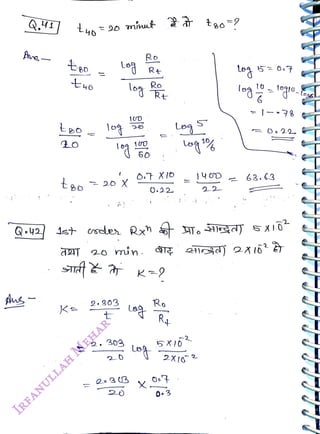 Q.41 t40 = 20 minut है तो t80 = ?
Ans — t80 / t40 = log Ro/Rt / log Ro/Rt
log 5 = 0.7
log 10/6 = log10 - log6
= 1 - .78
= 0.22
t80 / 20 = log 100/20 / log 100/60 = Log 5 / Log 10/6
t80 = 20 X 0.7 X 10 / 0.22 = 1400 / 22 = 63.63
Q.42 1st order Rxn की प्रा० सान्द्रता 5 X 10-2
तथा 20 min. बाद सान्द्रता 2 X 10-2 हो
जाती है तो K = ?
Ans —
K = 2.303 / t log Ro / Rt
= 2.303 / 20 log 5 X 10-2 / 2 X 10-2
= 2.303 / 20 X 0.7 / 0.3
IRFANULLAH MEHAR